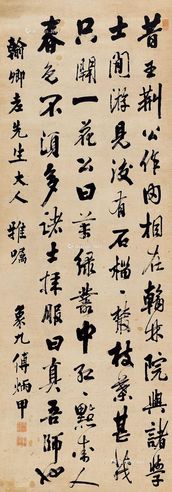 昔王荆公作內相在翰林院與諸學
士閒游見後有石榴一叢枝葉甚茂
只開一花公曰萬綠叢中紅一點動人
春色不須多諸士拜服曰真吾師也
翰卿老先生大人 雅嘱
象九傅炳甲